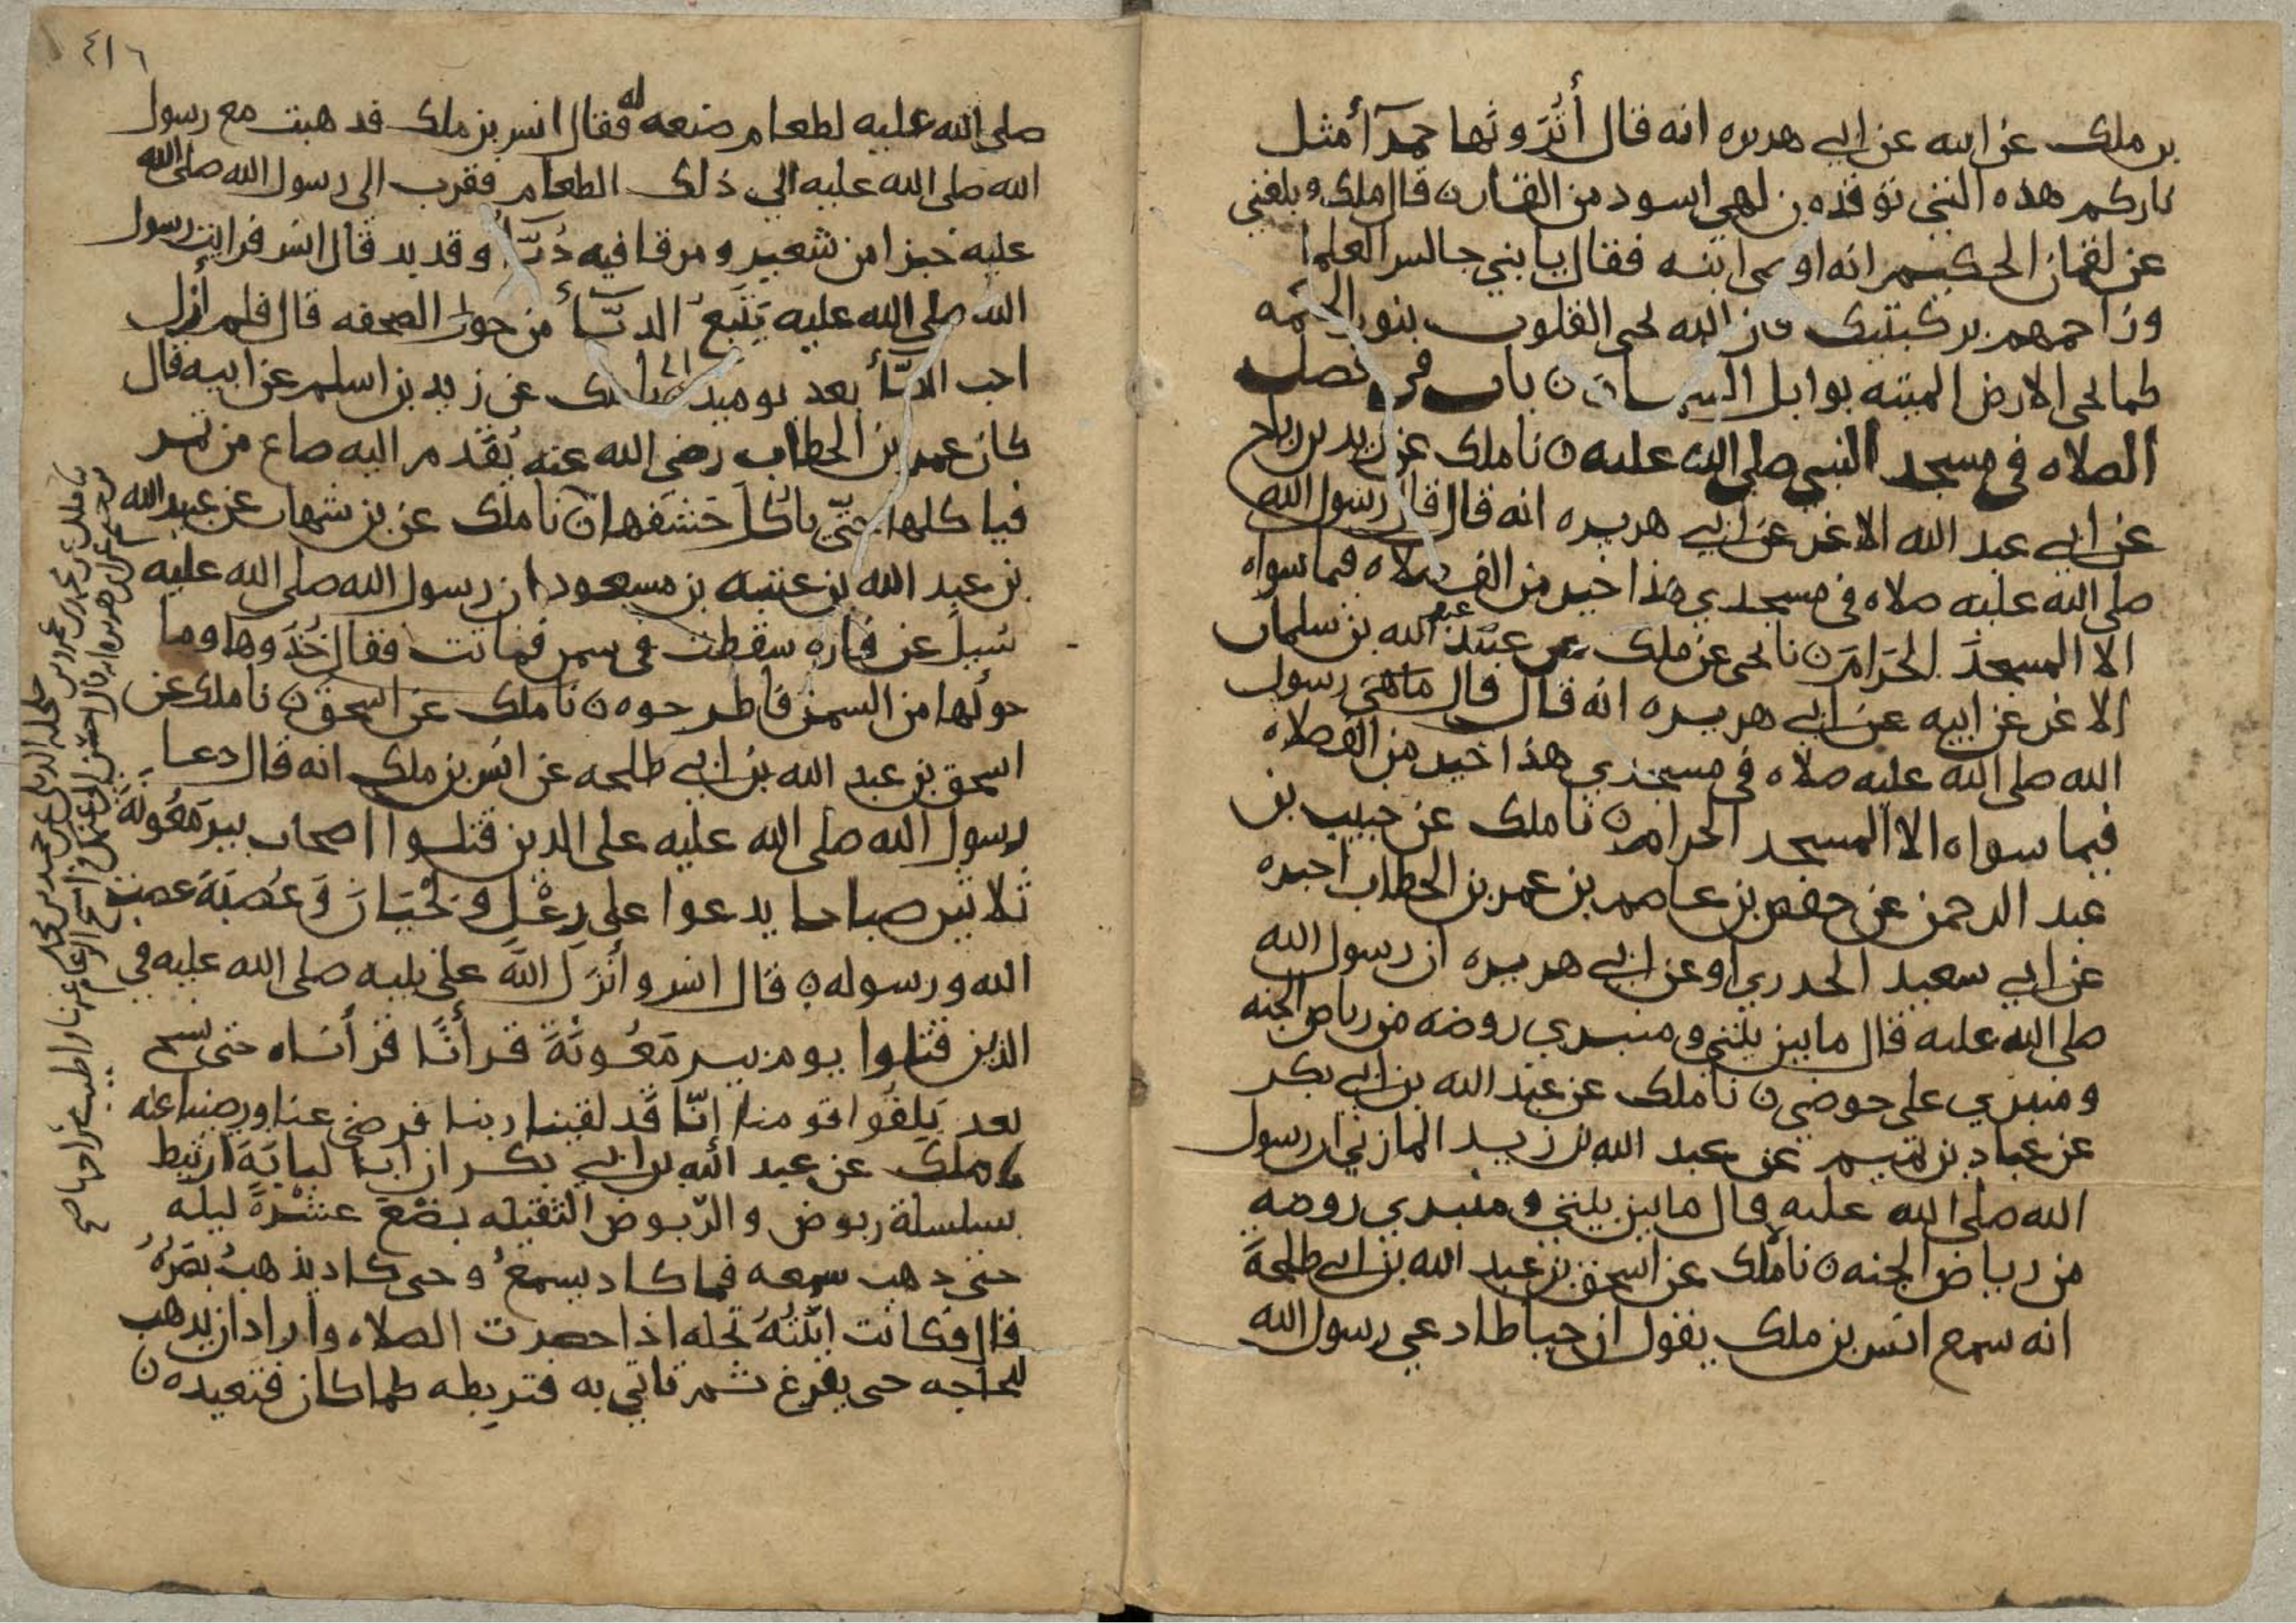 بن ملك عن ابيه عن ابي هريره انه قال أتُرَونها حمرآ أمثل
ناركم هذه التي توقدون لهي اسود من القار ن قال ملك وبلغني
عن لقمان الحكيم انه اوصى ابنه فقال يا بني جالس العلما
وزاحمهم بركبتيك فان الله يحي القلوب بنور الحكمه
كما يحي الارض الميته بوابل السما ن باب في فضل
الصلاه في مسجد النبي صلى الله عليه ن نا ملك عن زيد بن رباح
عن ابي عبد الله الاغر عن ابي هريره انه قال قال رسول الله
صلى الله عليه صلاه في مسجدي هذا خير من الف صلاه فيما سواه
الا المسجدَ الحَرامَ ن نا يحيى عن ملك عن عبيد الله بن سلمان
الاغر عن ابيه عن ابي هريره انه قال قال رسول
الله صلى الله عليه صلاه في مسجدي هذا خير من الف صلاه
فيما سواه الا المسجد الحرام ن نا ملك عن خبيب بن
عبد الرحمن عن حفص بن عاصم بن عمر بن الخطاب اخبره
عن ابي سعيد الخدري او عن ابي هريره ان رسول الله
صلى الله عليه قال ما بين بيتي ومنبري روضه من رياض الجنه
ومنبري على حوضي ن نا ملك عن عبد الله بن ابي بكر
عن عباد بن تميم عن عبد الله بن زيد المازني ان رسول
الله صلى الله عليه قال ما بين بيتي ومنبري روضه
من رياض الجنه ن نا ملك عن اسحق بن عبد الله بن ابي طلحة
انه سمع انس بن ملك يقول ان خياطا دعي رسول الله
٤١٦
صلى الله عليه لطعام صنعه له فقال انس بن ملك فذهبت مع رسول
الله صلى الله عليه الي ذلك الطعام فقرب الى رسول الله صلى الله
عليه خبزا من شعير ومرقا فيه دُبّآ وقديد قال انس فرايت رسول
الله صلى الله عليه يَتّبعُ الدبّآ من حول الصحفه قال فلم أزل
احب الدبّآ بعد يوميذ نا ملك عن زيد بن اسلم عن ابيه قال
كان عمر بن الخطاب رضي الله عنه يُقدم اليه صاع من تمر
فياكلها حتّي ياكل حَشَفَها ن نا ملك عن بن شهاب عن عبيد الله
بن عبد الله بن عتبه بن مسعود ان رسول الله صلى الله عليه
سُيلَ عن فاره سقطت في سمن فماتت فقال خُذوها وما
حولَها من السمن فاطرحوه ن نا ملك عن اسحق ن نا ملك عن
اسحق بن عبد الله بن ابي طلحه عن انس بن ملك انه قال دعا
رسول الله صلى الله عليه على الذين قتلوا اصحاب بير مَعُونةَ
ثلاثين صباحا يدعوا على رِعْلٍ ولَحْيَانَ وَعُصَيَةَ عصت
الله ورسوله ن قال انس وأنْزَلَ اللهُ على نبيه صلى الله عليه في
الذين قتلوا يوم بير مَعُونَةَ قرأنًا قرأناه حتى نسخ
بعد بَلِغُوا قومنا إنّا قَد لقينا ربنا فرضي عنا ورضينا عنه
نا ملك عن عبد الله بن ابي بكر ان ابا لبابَةَ ارتبط
بسلسلة ربوض والرّبوض الثقيله بضْعَ عشْرةَ ليله
حتى ذهب سمعه فما كاد يسمعُ وحتى كاد يذهبُ بصَرُهُ
قال فكانت ابْنَتُهُ تحله اذا حضرت الصلاه واراد ان يذهب
للحاجه حتى يفرغ ثم تاتي به فتربطه كما كان فتعيده ن
نا ملك عن محمد بن عمرو بن حلحله الديلي عن حميد بن ملك
بن خثيم عن ابي هريره انه قال احسن الى غنمك وامسح الرعام عنها واطب مراحها صح